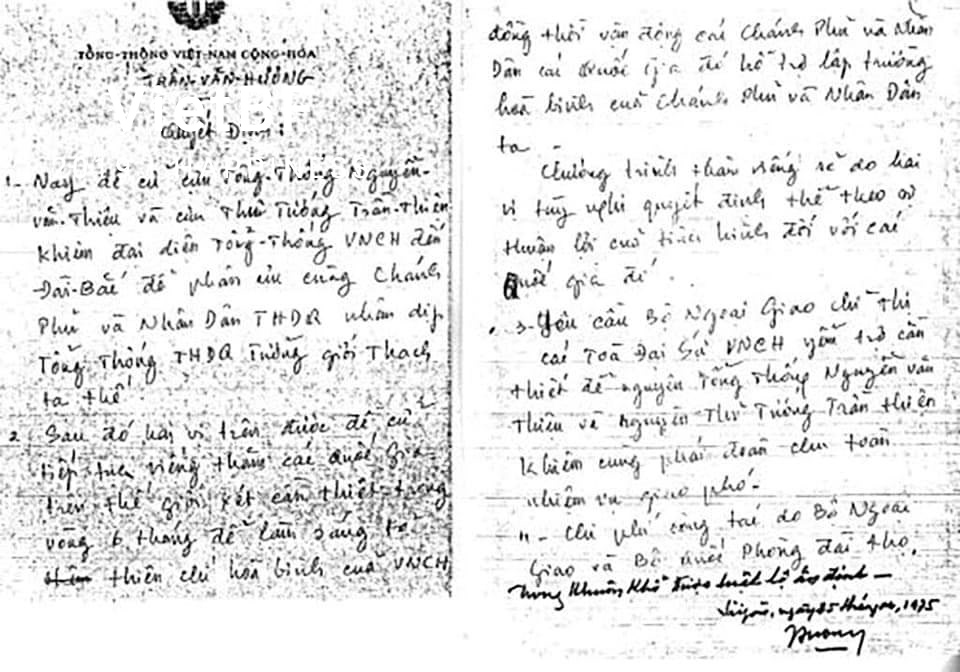 TỔNG-THỐNG VIỆT-NAM CỘNG-HÒA
TRẦN-VĂN-HƯƠNG
VietBF
Quyết Định:
1- Nay đề cử cựu Tổng-Thống Nguyễn-
văn-Thiệu và cựu Thủ Tướng Trần-Thiện
Khiêm đại diện Tổng-Thống VNCH đến
Đài-Bắc để phân ưu cùng Chánh
Phủ và Nhân Dân THDQ nhân dịp
Tổng Thống THDQ Tưởng giới Thạch
tạ thế.
2 Sau đó hai vị trên được đề cử
tiếp tục viếng thăm các quốc gia
trên thế giới xét cần thiết trong
vòng 6 tháng để làm sáng tỏ
thiện chí hoà bình của VNCH
đồng thời vận động các Chánh Phủ và Nhân
Dân các Quốc gia đó hỗ trợ lập trường
hoà bình của Chánh Phủ và Nhân Dân
ta -
Chương trình thăm viếng sẽ do hai
vị tùy nghi quyết định thể theo sự
thuận lợi của tình hình đối với các
quốc gia đó.
3- Yêu cầu Bộ Ngoại Giao chỉ thị
các Toà Đại Sứ VNCH yểm trợ cần
thiết để nguyên Tổng Thống Nguyễn văn
Thiệu và nguyên Thủ Tướng Trần thiện
Khiêm cùng phái đoàn chu toàn
nhiệm vụ giao phó -
4 - Chi phí công tác do Bộ Ngoại
Giao và Bộ Quốc Phòng đài thọ.
Trong Khuôn Khổ được luật lệ ấn định -
Saigon, ngày 25 tháng 04, 1975
Huong